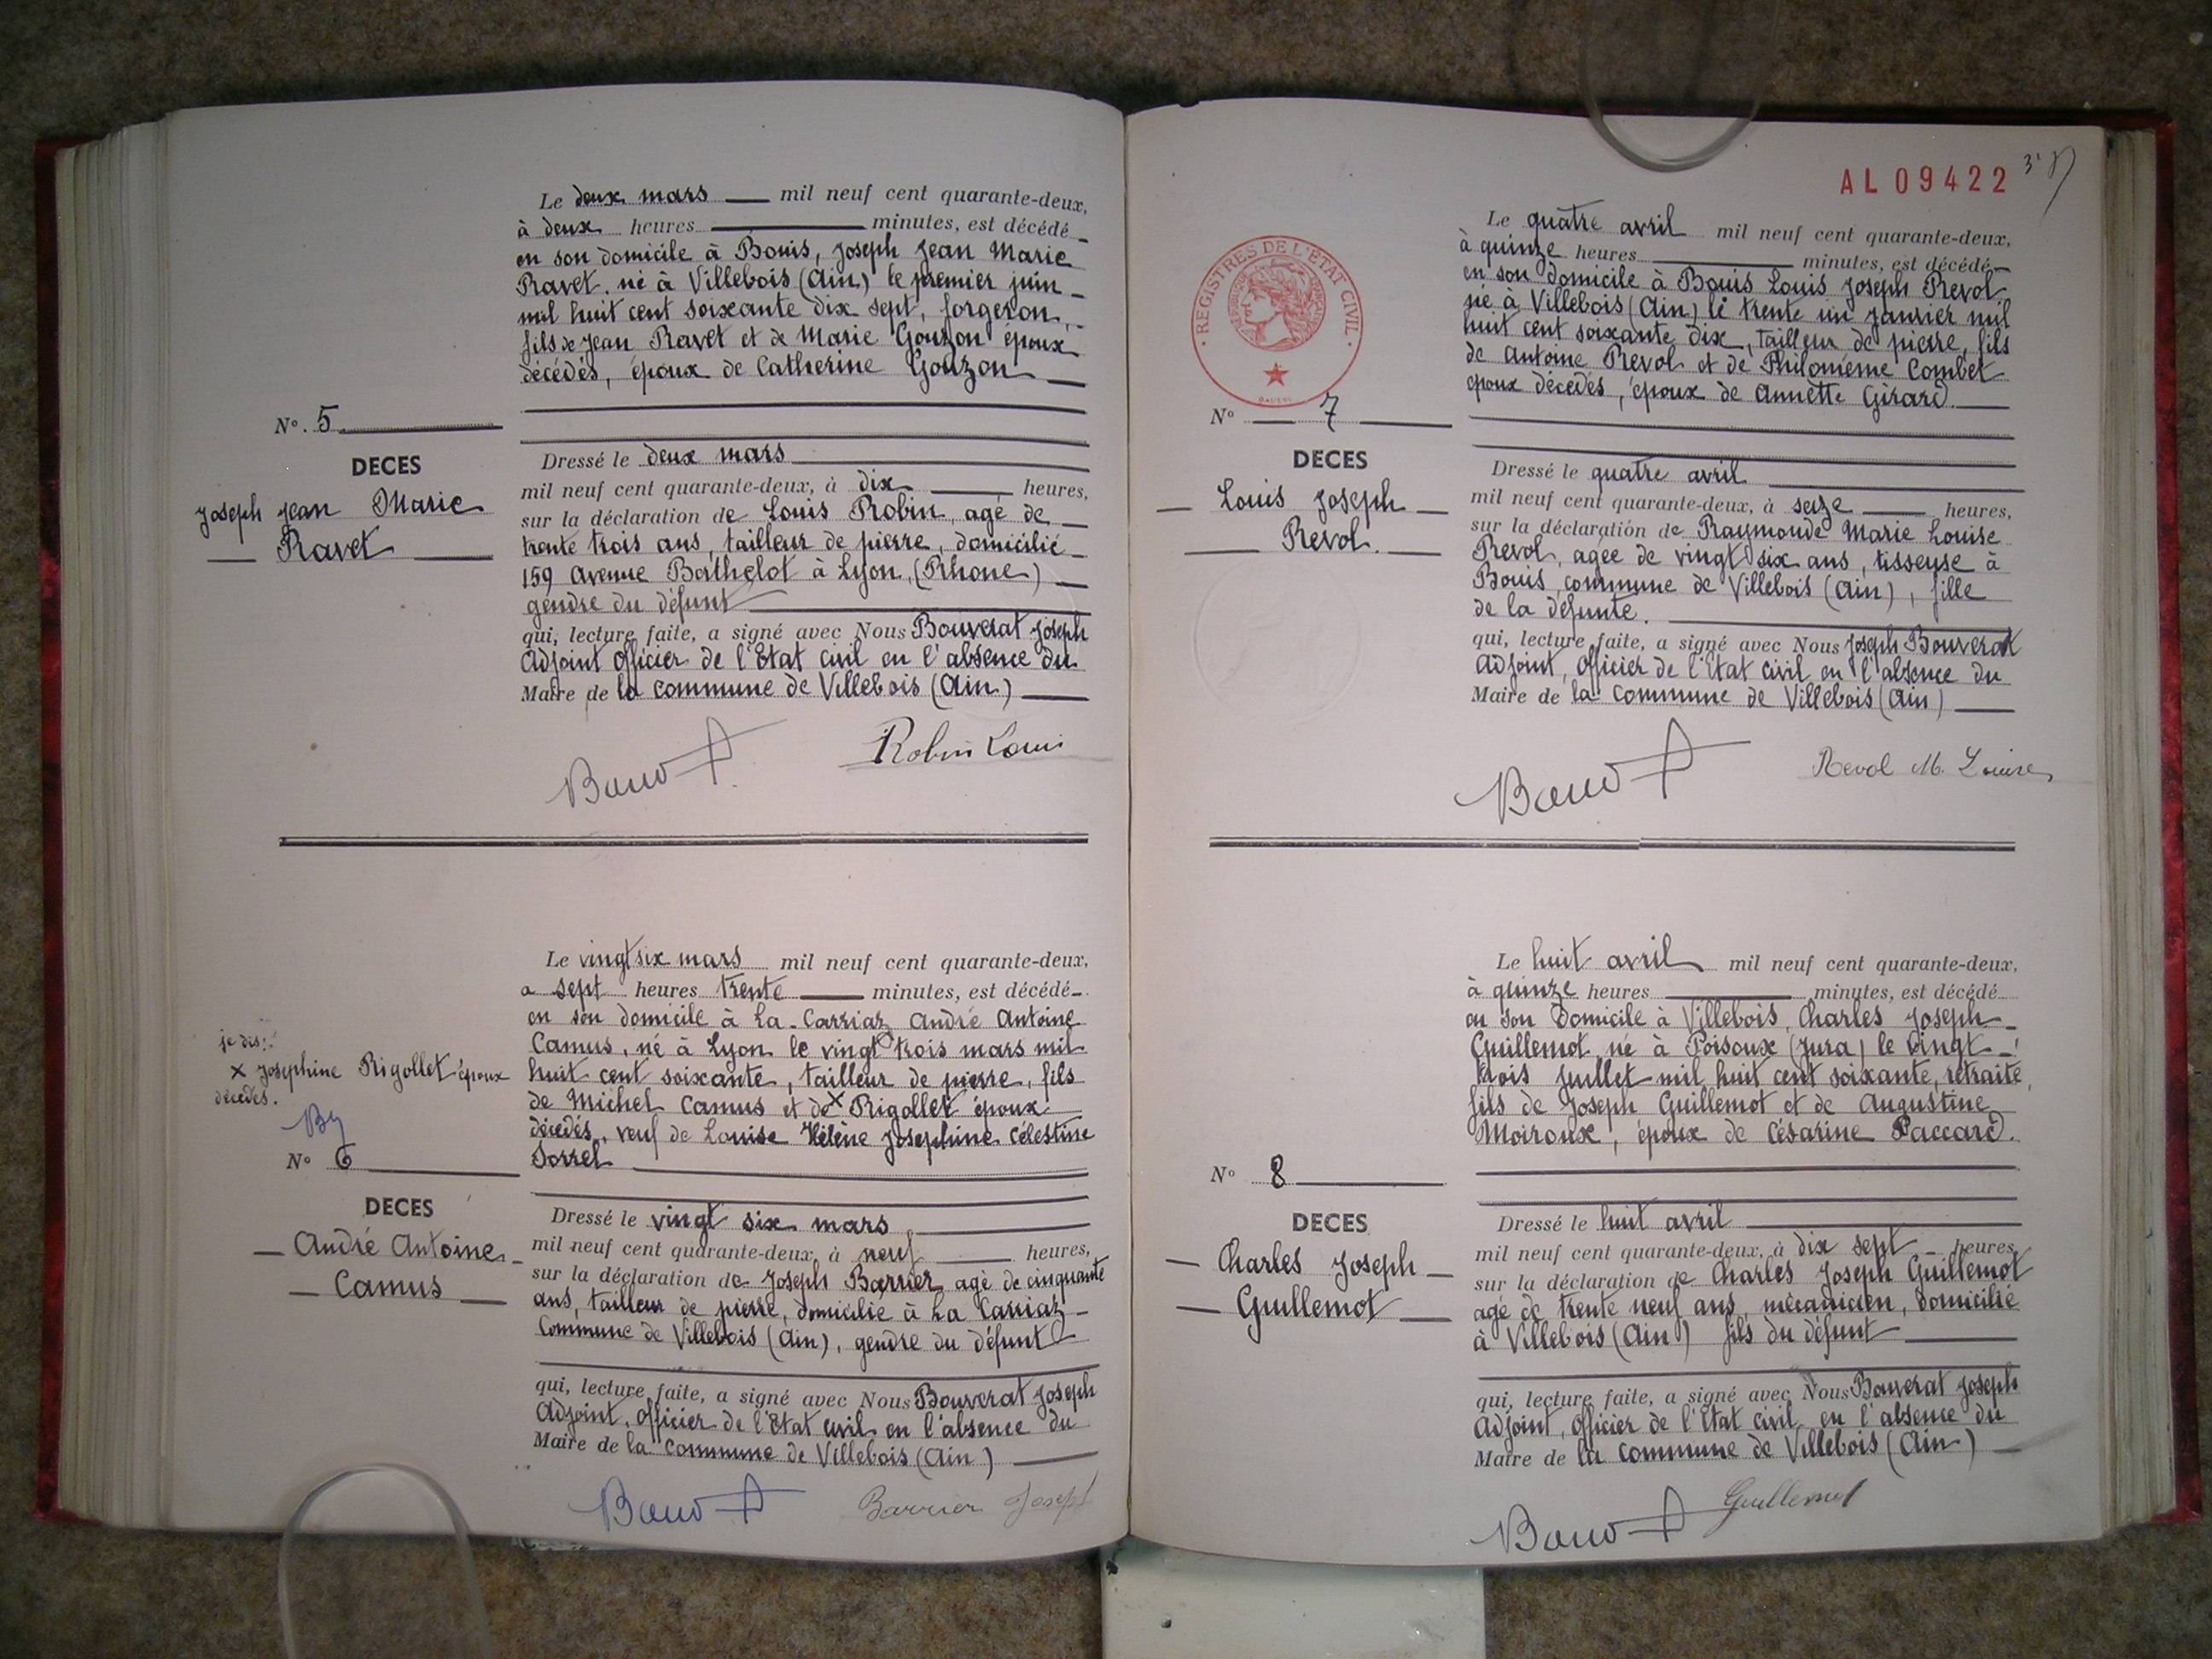 Le deux mars mil neuf cent quarante-deux,
à deux heures minutes, est décédé
en son domicile à Bouis, Joseph Jean Marie
Ravet. né à Villebois (Ain) le premier juin
mil huit cent soixante dix sept, forgeron,
fils de Jean Ravet et de Marie Gouzon époux
décédés, époux de Catherine Gouzon
N° 5
DECES
Joseph Jean Marie
Ravet
Dressé le deux mars
mil neuf cent quarante-deux, à dix heures,
sur la déclaration de Louis Robin, agé de
trente trois ans, tailleur de pierre, domicilié
159 Avenue Bathelot à Lyon, (Rhone)
gendre du défunt
qui, lecture faite, a signé avec Nous Bouverat Joseph
Adjoint Officier de l'Etat civil en l'absence du
Maire de la commune de Villebois (Ain)
Robin Louis
Le vingt six mars mil neuf cent quarante-deux,
a sept heures trente minutes, est décédé
en son domicile à La Carriaz André Antoine
Camus, né à Lyon le vingt trois mars mil
huit cent soixante, tailleur de pierre, fils
de Michel Camus et de x Rigollet époux
décédés, veuf de Louise Hélène Josephine Célestine
Sorrel
je dis:
x Josephine Rigollet époux
décédés.
N° 6
DECES
André Antoine
Camus
Dressé le vingt six mars
mil neuf cent quarante-deux, à neuf heures,
sur la déclaration de Joseph Barrier agé de cinquante
ans, tailleur de pierre, domicilié à La Carriaz
Commune de Villebois (Ain), gendre du défunt
qui, lecture faite, a signé avec Nous Bouverat Joseph
Adjoint, Officier de l'Etat civil en l'absence du
Maire de la commune de Villebois (Ain)
Barrier Joseph
AL 09422
REGISTRES DE L'ETAT CIVIL
Le quatre avril mil neuf cent quarante-deux,
à quinze heures minutes, est décédé
en son domicile à Bouis Louis Joseph Revol
né à Villebois (Ain) le trente un janvier mil
huit cent soixante dix, tailleur de pierre, fils
de Antoine Revol et de Philomème Combet
époux décédés, époux de Annette Girard.
N° 7
DECES
Louis Joseph
Revol.
Dressé le quatre avril
mil neuf cent quarante-deux, à seize heures,
sur la déclaration de Raymonde Marie Louise
Revol, agée de vingt six ans, tisseuse à
Bouis, commune de Villebois (Ain), fille
de la défunte.
qui, lecture faite, a signé avec Nous Joseph Bouverat
Adjoint, Officier de l'Etat civil en l'absence du
Maire de la Commune de Villebois (Ain)
Revol M. Louise
Le huit avril mil neuf cent quarante-deux,
à quinze heures minutes, est décédé
en son domicile à Villebois, Charles Joseph
Guillemot né à Poisoux (Jura) le vingt
trois juillet mil huit cent soixante, retraité,
fils de Joseph Guillemot et de Augustine
Moiroux, époux de Césarine Paccard.
N° 8
DECES
Charles Joseph
Guillemot
Dressé le huit avril
mil neuf cent quarante-deux, à dix sept heures,
sur la déclaration de Charles Joseph Guillemot
agé de trente neuf ans, mécanicien, domicilié
à Villebois (Ain) fils du défunt
qui, lecture faite, a signé avec Nous Bouverat Joseph
Adjoint, Officier de l'Etat civil en l'absence du
Maire de la commune de Villebois (Ain)
Guillemot